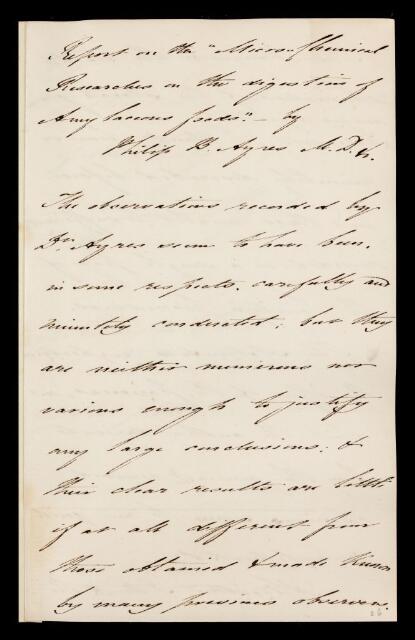 Report on the "Micro-Chemical
Researches on the digestion of
Amylaceous foods." — by
Philip B. Ayres M.D. &c.
The observations recorded by
Dr. Ayres seem to have been,
in some respects, carefully and
minutely conducted; but they
are neither numerous nor
various enough to justify
any large conclusions; &
their clear results are little
if at all different from
those obtained & made known
by many previous observers.
26